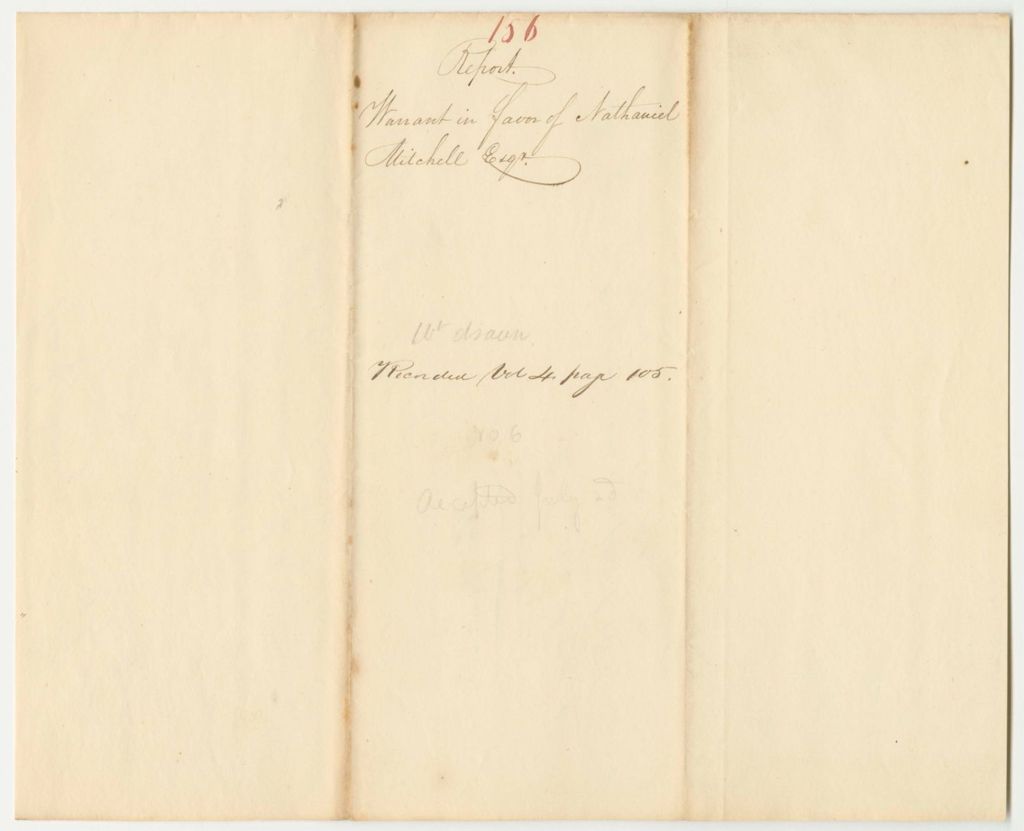 156
Report.
Warrant in favor of Nathaniel
Mitchell Esqr.
Wt drawn.
Recorded Vol 4. page 105.
No 6
Accepted July 2d